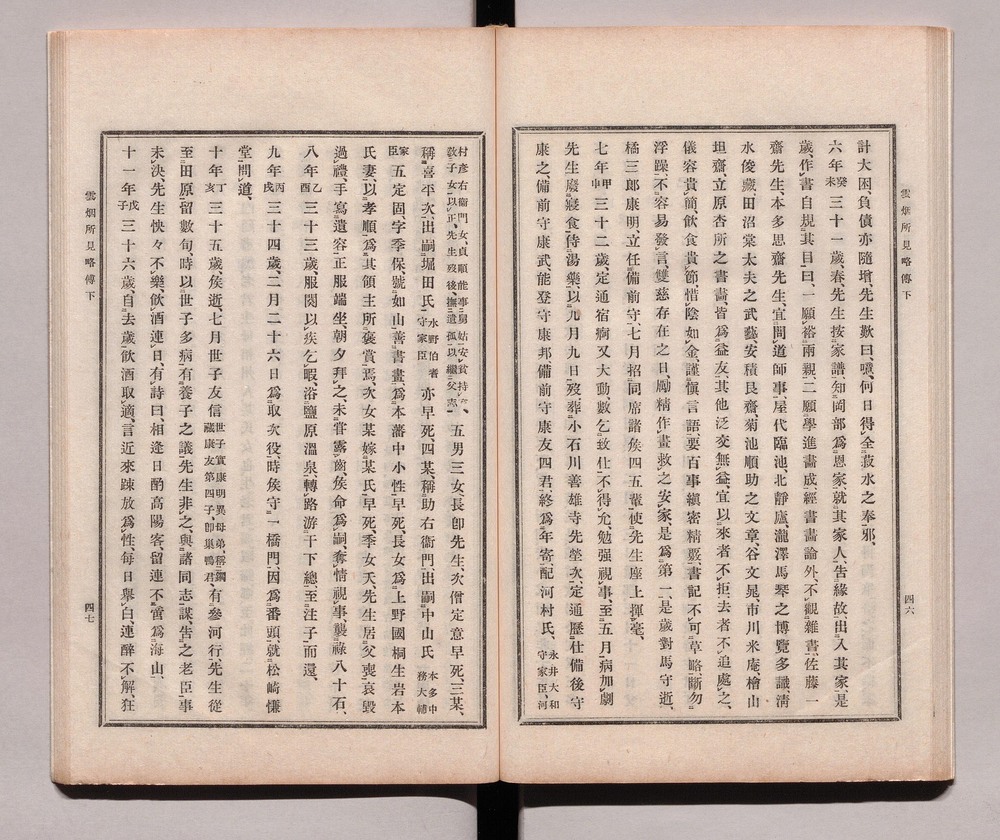 雲烟所見略傳下
四六
計大困、負債亦隨增、先生歎曰、噫、何日得全菽水之奉邪、
六年癸未三十一歲、春、先生按家譜、知岡部爲恩家、就其家人告緣故、出入其家、是
歲作書自規、其目曰、一願裕兩親、二願學進畵成、經書畵論外、不觀雜書、佐藤一
齋先生、本多思齋先生、宜問道師事、屋代臨池、北靜廬、瀧澤馬琴之博覽多識、淸
水俊藏、田沼棠太夫之武藝、安積艮齋、菊池順助之文章、谷文晁、市川米庵、檜山
坦齋、立原杏所之書畵、皆爲益友、其他泛交無益、宜以來者不拒、去者不追處之、
儀容貴簡、飮食貴節、惜陰如金、謹愼言語、要百事縝密精覈、書記不可草略斷勿
浮躁、不容易發言、雙慈存在之日、勵精作畫、救之安家、是爲第一、是歲對馬守逝、
橘三郞康明立、任備前守、七月招同席諸侯四五輩、使先生座上揮毫、
七年甲申三十二歲、定通宿痾又大動、數乞致仕、不得允、勉强視事、至五月、病加劇、
先生廢寢食、侍湯藥、以九月九日歿、葬小石川善雄寺先塋次、定通歷仕備後守
康之、備前守康武、能登守康邦、備前守康友四君、終爲年寄、配河村氏、永井大和守家臣、河
村彥右衞門女、貞順能事舅姑、安貧持家、敎子女以正、先生歿後、撫遺孤以繼父志、五男三女、長卽先生、次僧定意早死、三某、
稱喜平次、出嗣堀田氏、水野伯耆守家臣亦早死、四某稱助右衞門、出嗣中山氏、本多中務大輔
家臣五定固字季保、號如山、善書畫、爲本藩中小性、早死、長女爲上野國桐生岩本
氏妻、以孝順爲其領主所褒賞焉、次女某嫁某氏、早死、季女夭、先生居父喪、哀毀
過禮、手寫遺容、正服端坐、朝夕拜之、未甞露齒、侯命爲嗣、奪情視事、襲祿八十石、
八年乙酉三十三歲、服闋以疾乞暇、浴鹽原溫泉、轉路游于下總、至注子而還、
九年丙戌三十四歲、二月二十六日爲取次役、時侯守一橋門、因爲番頭、就松崎慊
堂問道、
十年丁亥三十五歲、侯逝、七月世子友信世子實康明異母弟、稱鋼藏、康友第四子、卽巢鴨君、有參河行、先生從
至田原、留數旬、時以世子多病、有養子之議、先生非之、與諸同志謀、告之老臣、事
未決、先生怏々不樂、飮酒連日、有詩曰、相逢日酌高陽客、留連不啻爲海山、
十一年戊子三十六歲、自去歲飮酒取適、言近來踈放爲性、每日擧白連醉不解、狂
雲烟所見略傳下
四七